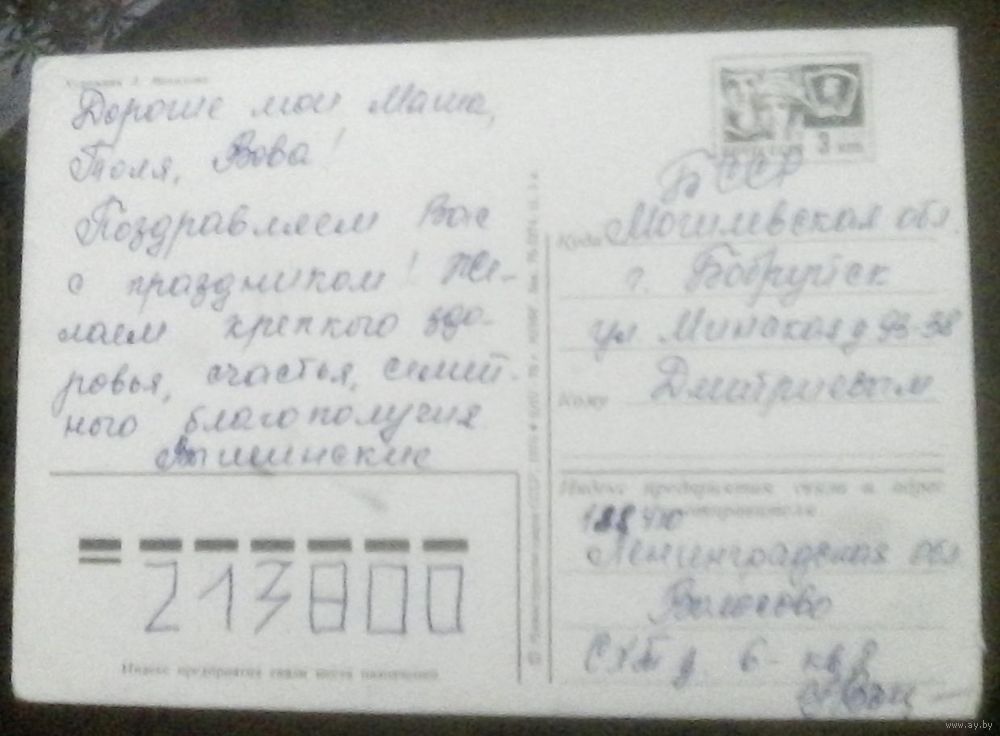 Дорогие мои Маша,
Толя, Вова!
Поздравляем Вас
с праздником! Же-
лаем крепкого здо-
ровья, счастья, семей-
ного благополучия
Вышинские
3 коп.
БССР
Куда Могилевская обл.
г. Бобруйск
ул Минская д 93-38
Кому Дмитриевым
Индекс предприятия связи и адрес
отправителя
188410
Ленинградская обл
Волосово
СХТ д. 6- кв 8
213800
Индекс предприятия связи места назначения
www.ay.by